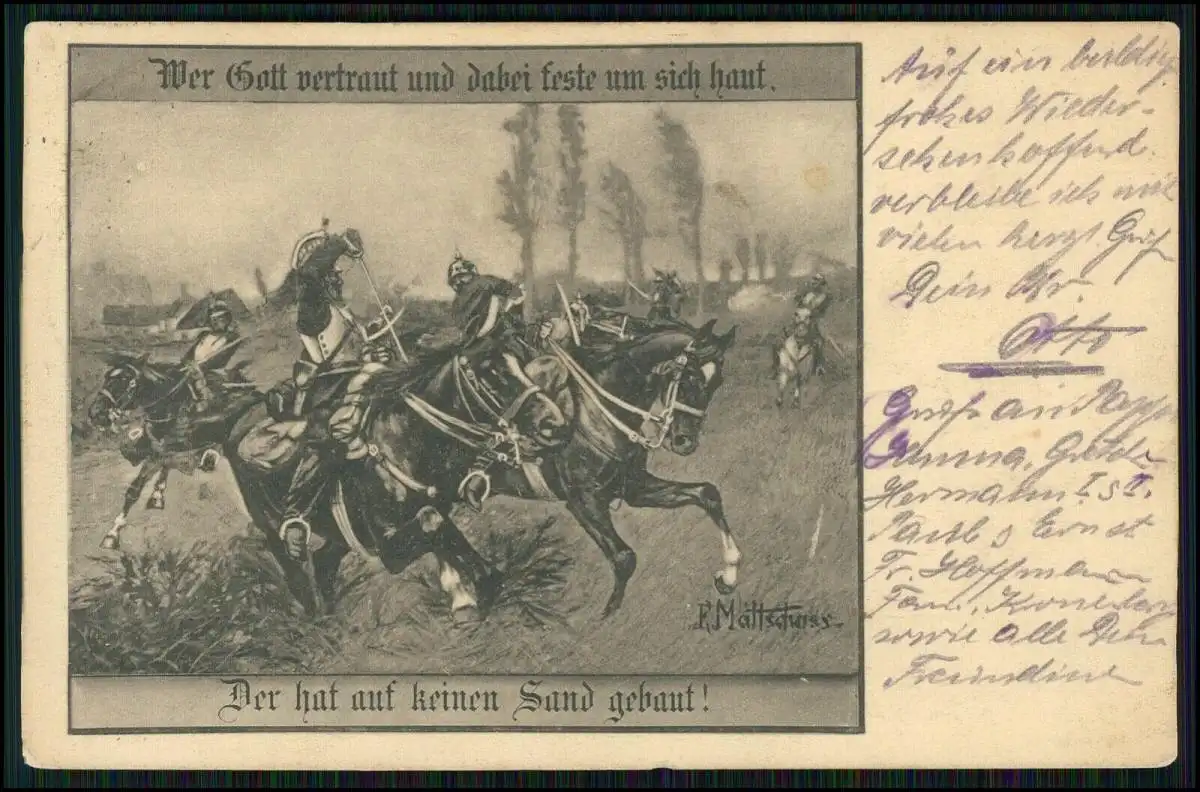 Wer Gott vertraut und dabei feste um sich haut,
Der hat auf keinen Sand gebaut!
Auf ein baldig
frohes Wieder-
sehen hoffend
verbleibe ich mit
vielen herzl. Gruß
Dein
Otto
Gruß an Pappa
Mamma,
Hermann I & II.
Ernst
Fr. Hoffmann
Fam.
sowie alle Dein
Freundine